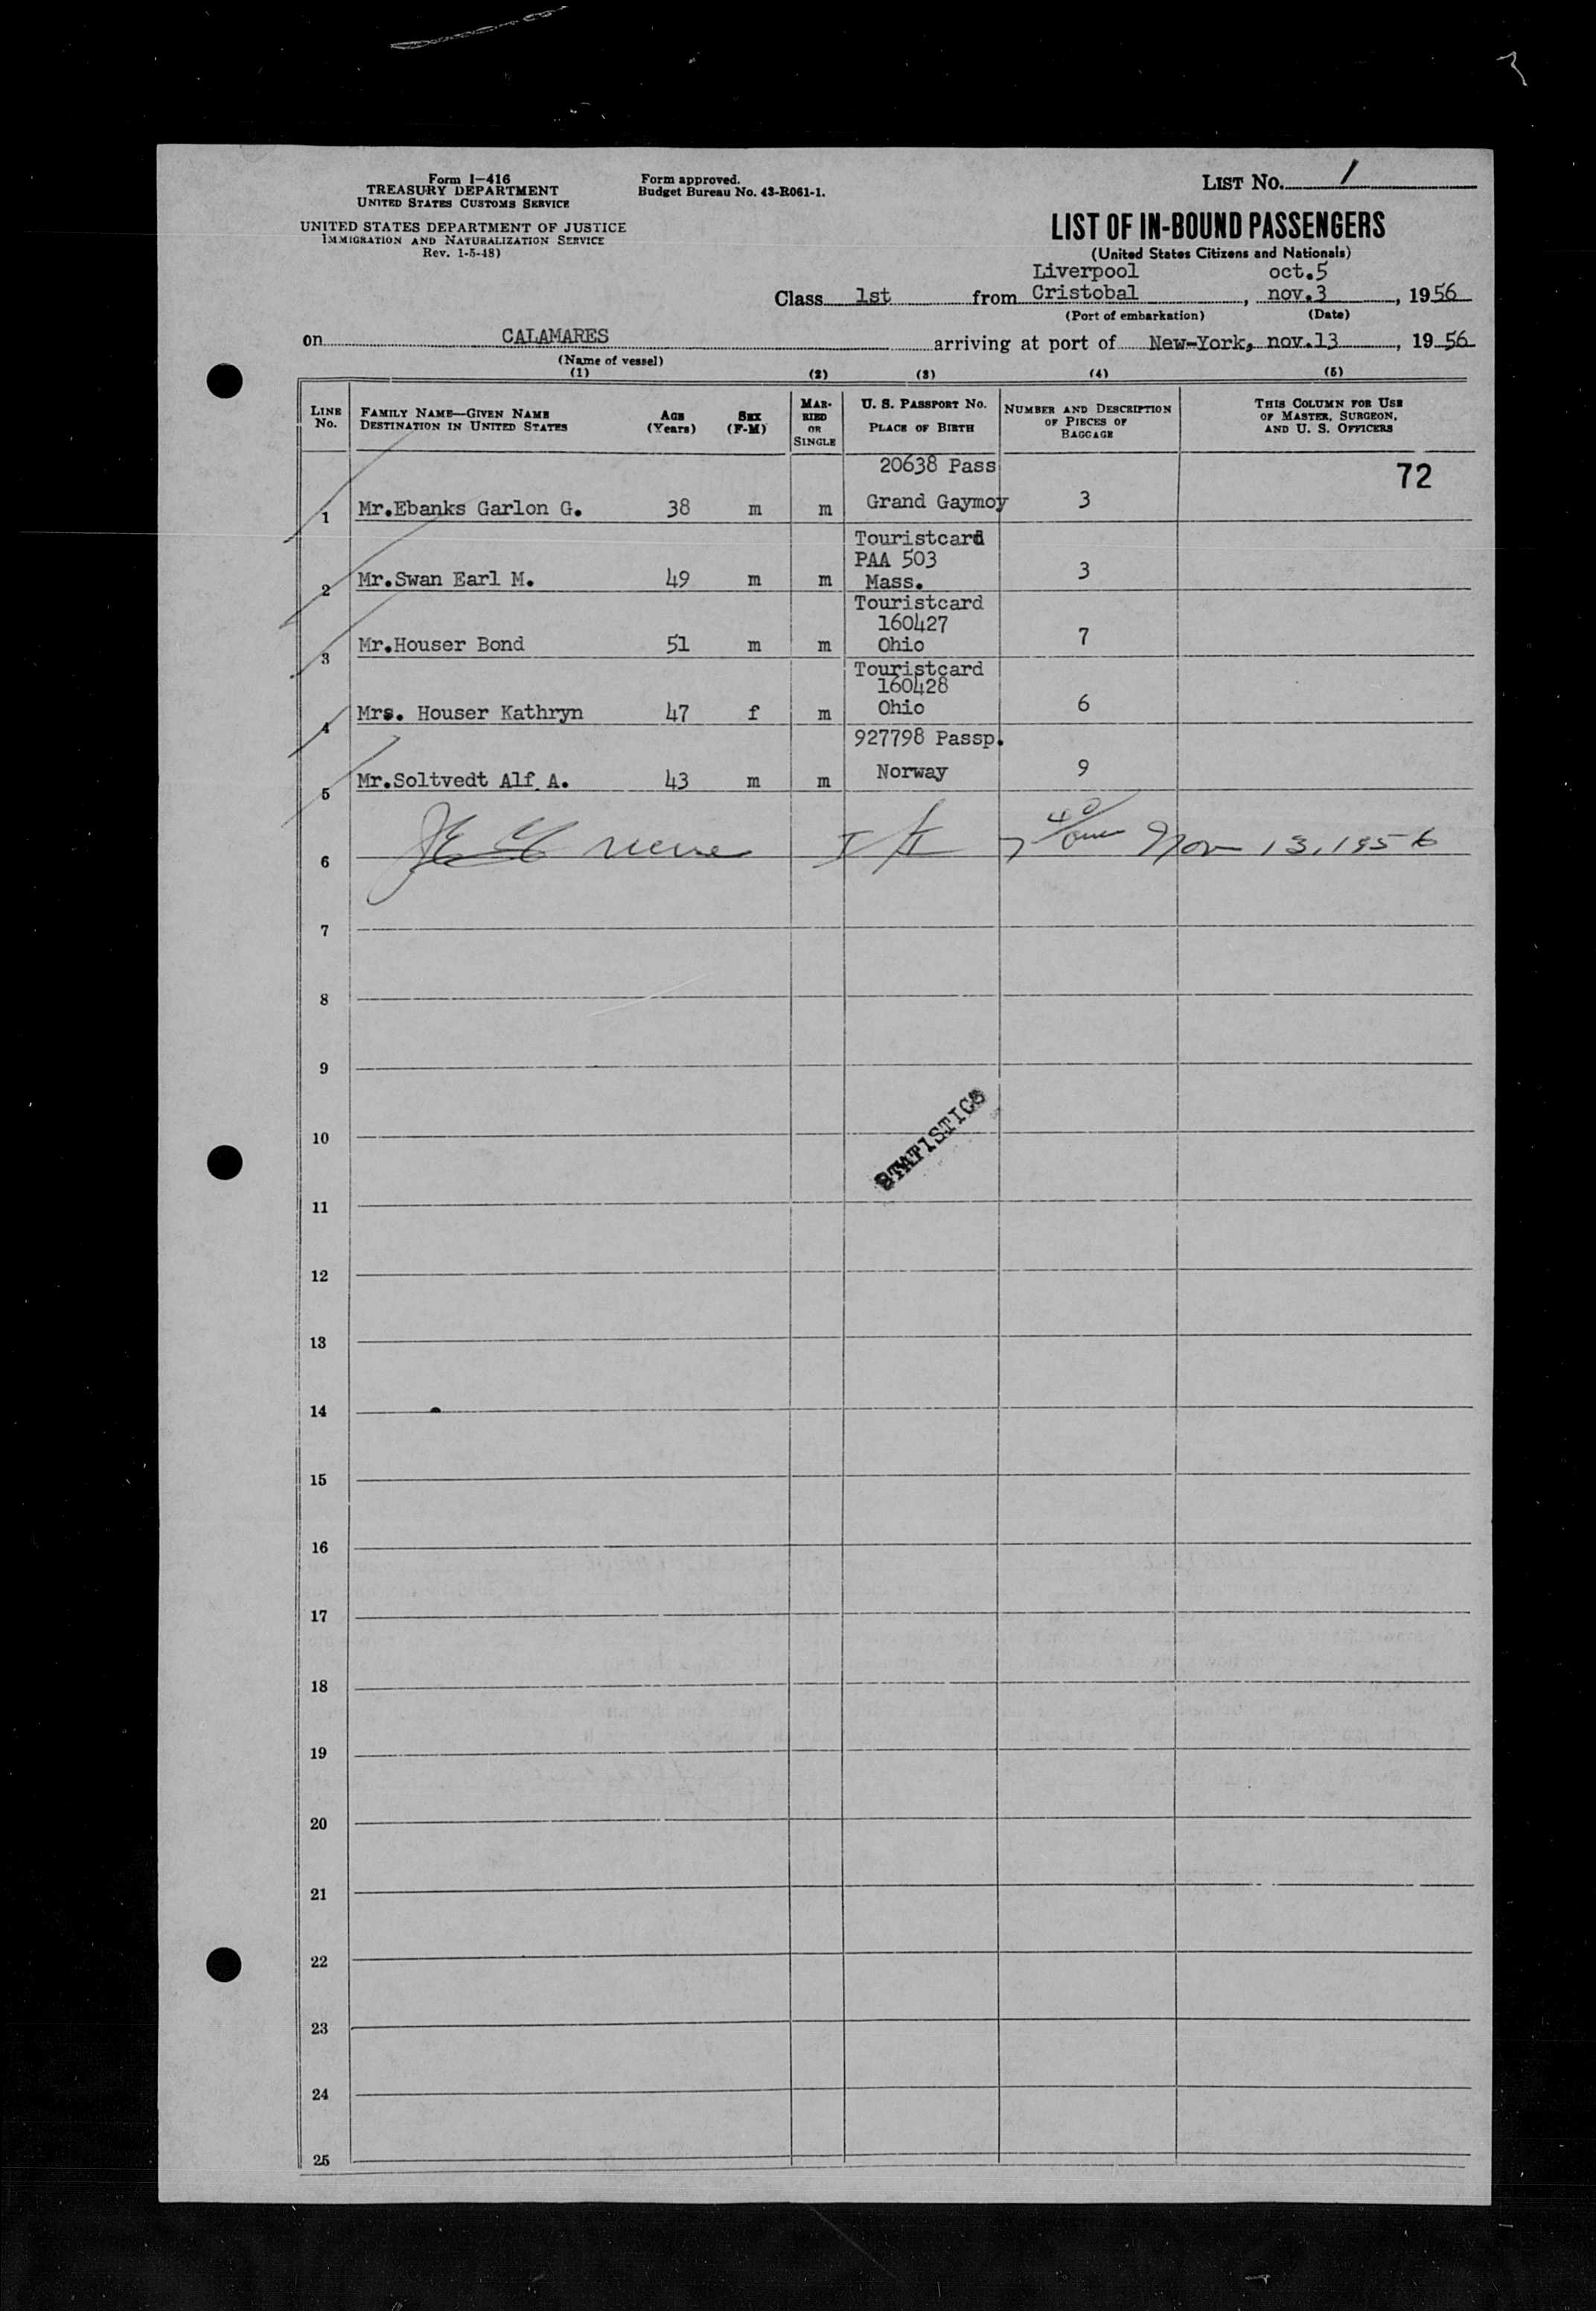 Form I-416
TREASURY DEPARTMENT
UNITED STATES CUSTOMS SERVICE
UNITED STATES DEPARTMENT OF JUSTICE
IMMIGRATION AND NATURALIZATION SERVICE
Rev. 1-5-48)
Form approved.
Budget Bureau No. 43-R061-1.
LIST NO. 1
LIST OF IN-BOUND PASSENGERS
(United States Citizens and Nationals)
Liverpool oct.5
Class 1st from Cristobal, nov.3, 1956
(Port of embarkation) (Date)
on CALAMARES arriving at port of New-York, nov.13, 1956
(Name of vessel)
(1) (2) (3) (4) (5)
LINE No. FAMILY NAME—GIVEN NAME DESTINATION IN UNITED STATES AGE (Years) SEX (F-M) MARRIED OR SINGLE U. S. PASSPORT NO. PLACE OF BIRTH NUMBER AND DESCRIPTION OF PIECES OF BAGGAGE THIS COLUMN FOR USE OF MASTER, SURGEON, AND U. S. OFFICERS
20638 Pass 72
1 Mr.Ebanks Garlon G. 38 m m Grand Gaymoy 3
Touristcard
PAA 503
2 Mr.Swan Earl M. 49 m m Mass. 3
Touristcard
160427
3 Mr.Houser Bond 51 m m Ohio 7
Touristcard
160428
4 Mrs. Houser Kathryn 47 f m Ohio 6
927798 Passp.
5 Mr.Soltvedt Alf A. 43 m m Norway 9
6 Nov 13, 1956
7
8
9
10
STATISTICS
11
12
13
14
15
16
17
18
19
20
21
22
23
24
25